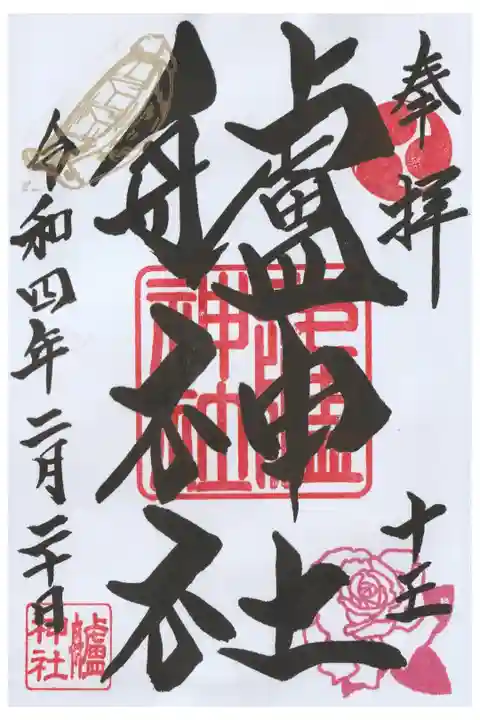 奉拝
十王
艫神社
神社
令和四年二月二十日
艫
神社